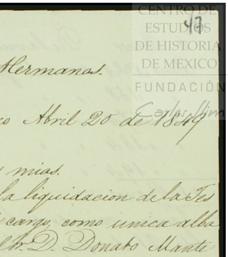 CENTRO DE
ESTUDIOS
DE HISTORIA
DE MEXICO
FUNDACIÓN
Carlos Slim
47
Hermanos.
co Abril 20 de 1849
s mias.
la liquidacion de la Tes
cargo, como unica alba
D. Donato Mante